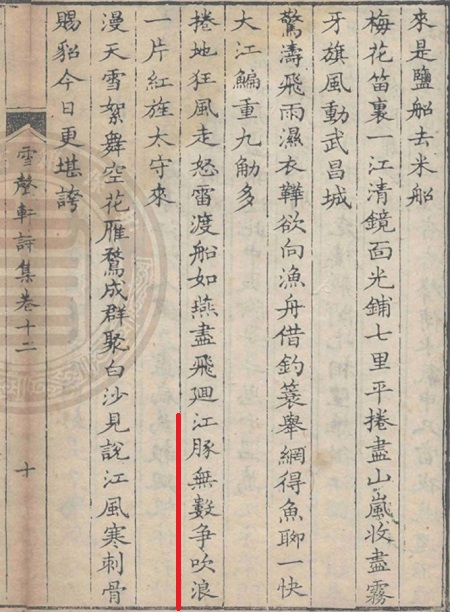 來是鹽船去米船
梅花笛裏一江清鏡面光鋪七里平捲盡山嵐收盡霧
牙旗風動武昌城
驚濤飛雨濕衣鞾欲向漁舟借釣簑舉網得魚聊一快
大江鯿重九觔多
捲地狂風走怒雷渡船如燕盡飛廻江豚無數爭吹浪
一片紅旌太守來
漫天雪絮舞空花雁鶩成群聚白沙見說江風寒刺骨
賜貂今日更堪誇
雪聲軒詩集卷十二
十